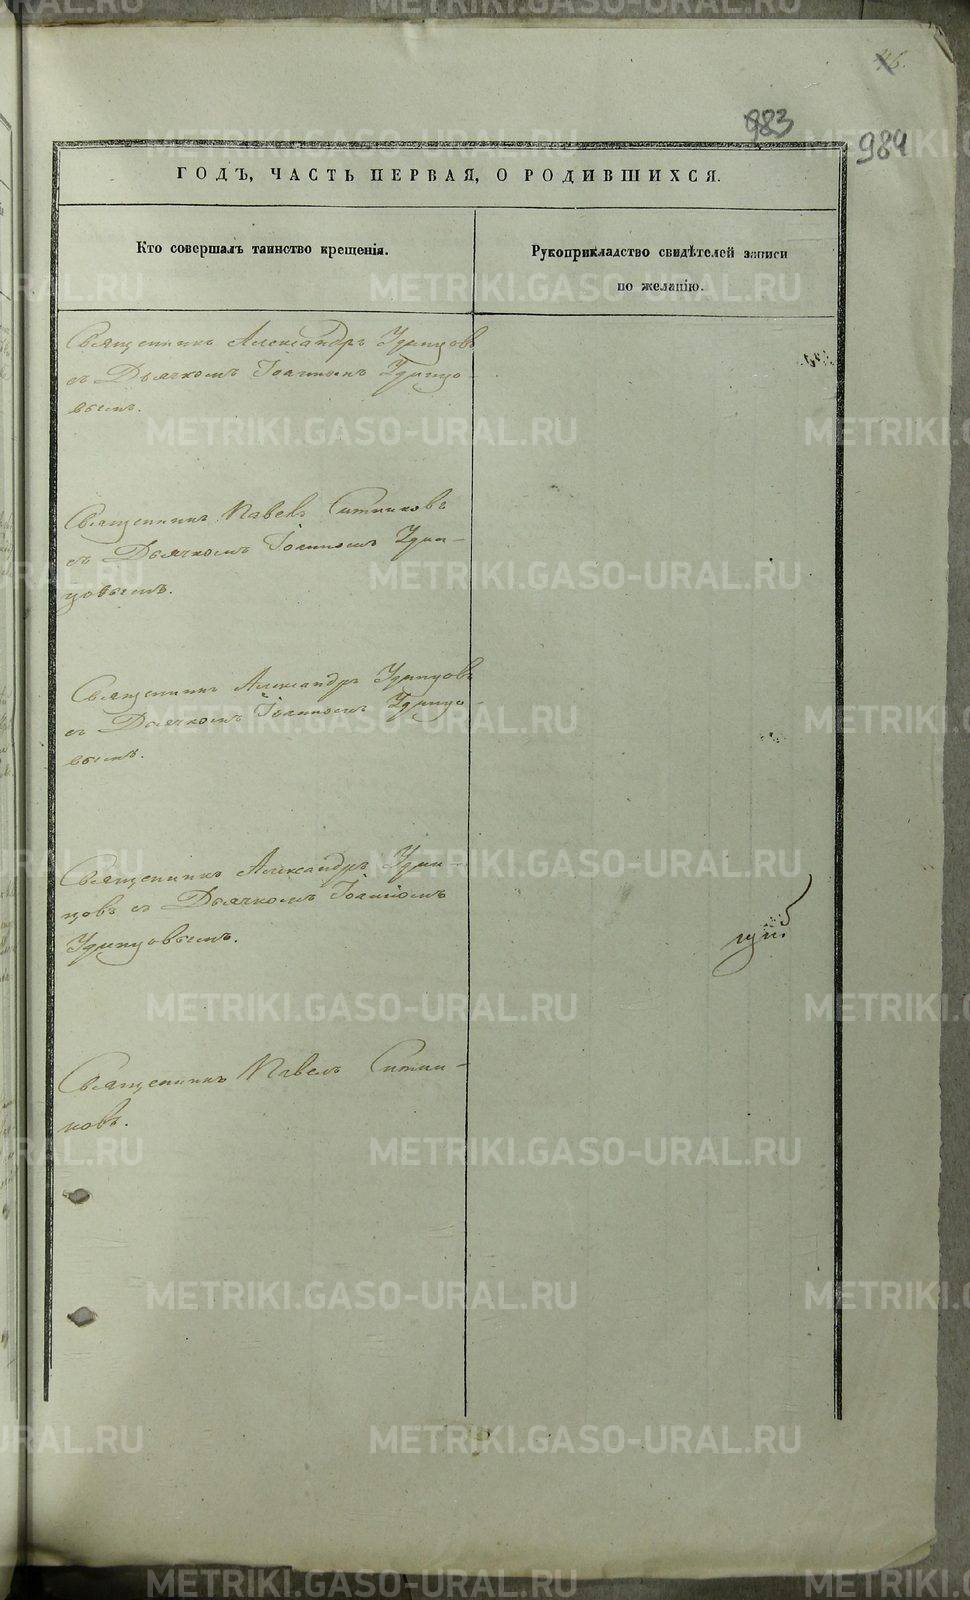 983
984
ГОДЪ, ЧАСТЬ ПЕРВАЯ, О РОДИВШИХСЯ.
Кто совершалъ таинство крещенія.
Рукоприкладство свидѣтелей записи
по желанію.
Священникъ Александръ Удинцовъ
съ Дьячкомъ Іоанномъ Удинцо-
вымъ.
Священникъ Павелъ Ситниковъ
съ Дьячкомъ Іоанномъ Удин-
цовымъ.
Священникъ Александръ Удинцовъ
съ Дьячкомъ Іоанномъ Удинцо-
вымъ.
Священникъ Александръ Удин-
цовъ съ Дьячкомъ Іоанномъ
Удинцовымъ.
Священникъ Павелъ Ситни-
ковъ.
METRIKI.GASO-URAL.RU